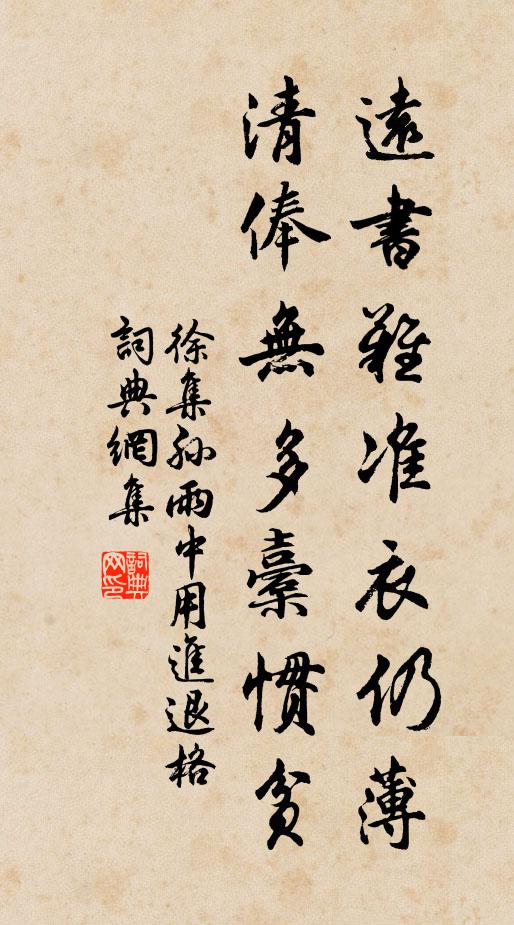 遠書難准衣仍薄
清俸無多橐慣貧
徐集孙雨中用進退格
詞典網集
詞典
网印